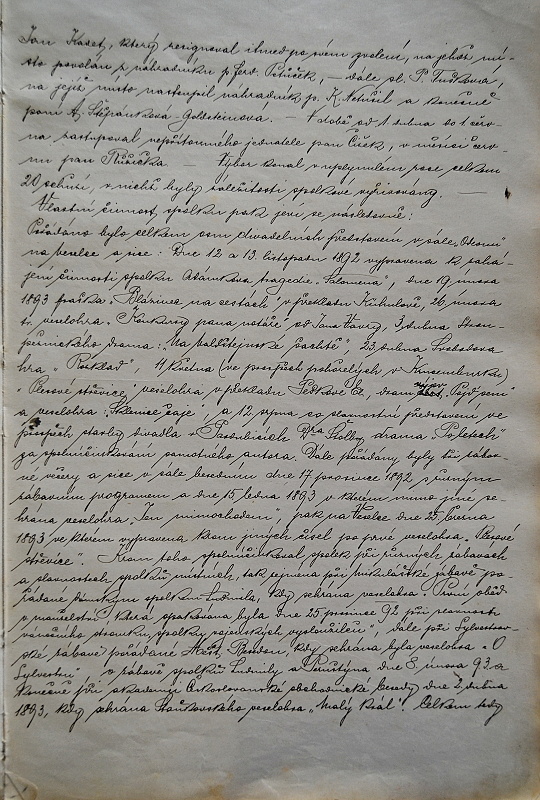 Jan Kaset, který resignoval ihned po svém zvolení, na jehož mí-
sto povolán z náhradníků p. Ferd. Petříček, — dále sl. P. Tučkova,
na jejíž místo nastoupil náhradník p. K. Netušil a konečně
paní A. Štěpánkova-Goldsteinova. — V době od 1 dubna do 1 červ-
na zastupoval nepřítomného jednatele pan Čížek, v měsíci červ-
nu pan Růžička — Výbor konal v uplynulém roce celkem
20 schůzí, v nichž byly záležitosti spolkové vyřizovány. —
Vlastní činnost spolku pak jeví se následovně:
Pořádáno bylo celkem osm divadelních představení v sále „
na Veselce a sice: Dne 12 a 13. listopadu 1892 vypravena k zahá-
jení činnosti spolku Adámkova tragedie „Salomena", dne 19 února
1893 fraška „Blázinec na cestách" v překladu 26. února
t. r. veselohra „Konkursy pana notáře" od Jana Vávry, 3 dubna Strou-
pežnického drama: „Na Valdštejnské šachtě" 23. dubna Svobodova
hra „Rozklad", 11 května (ve prospěch pohořelých v Kunemburku)
„Plesové střevíce" veselohra v překladu Peškové El., dram. výjev „Pojď sem"
a veselohra: „Sklenice čaje", a 12 srpna co slavnostní představení ve
prospěch stavby divadla v Pardubicích Dra Štolby drama „Poletech"
za spoluúčinkování samotného autora. Dále pořádány byly tři zábav-
né večery a sice v sále besedním dne 17 prosince 1892 s různým
zábavným programem a dne 15. ledna 1893 v kterém mimo jiné se-
hrána veselohra „Jen mimochodem", pak na Veselce dne 25. března
1893 ve kterém vypravena kromě jiných čísel po prvé veselohra „Plesové
střevíce". Krom toho spoluúčinkoval spolek při různých zábavách
a slavnostech spolků místních, tak zejména při mikulášské zábavě po-
řádané dámským spolkem Ludmila, kdy sehrána veselohra „První oběd
v manželství", která opakována byla dne 25 prosince 92 při slavnosti
vánočního stromku, spolku vojenských vysloužilců", dále při Sylvestrov-
ské zábavě pořádané kdy sehrána byla veselohra „O
Sylvestru", o zábavě spolků Ludmily a Pernštýna dne 8. února 93. a
konečně při akademii Českoslovanské obchodnické besedy dne 2. dubna
1893, kdy sehrána Stroupežnického veselohra „Malý král". Celkem tedy